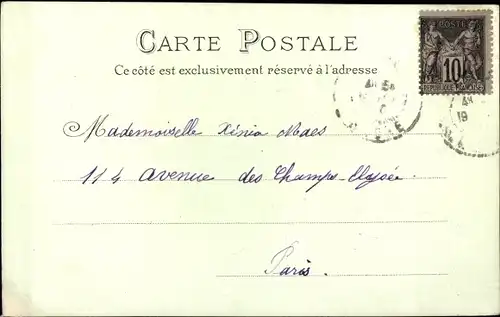 POSTE
10
REPUBLIQUE FRANCAISE
CARTE POSTALE
Ce côté est exclusivement réservé à l'adresse
Mademoiselle Xénia Maes
114 avenue des Champs-Elysée
Paris.